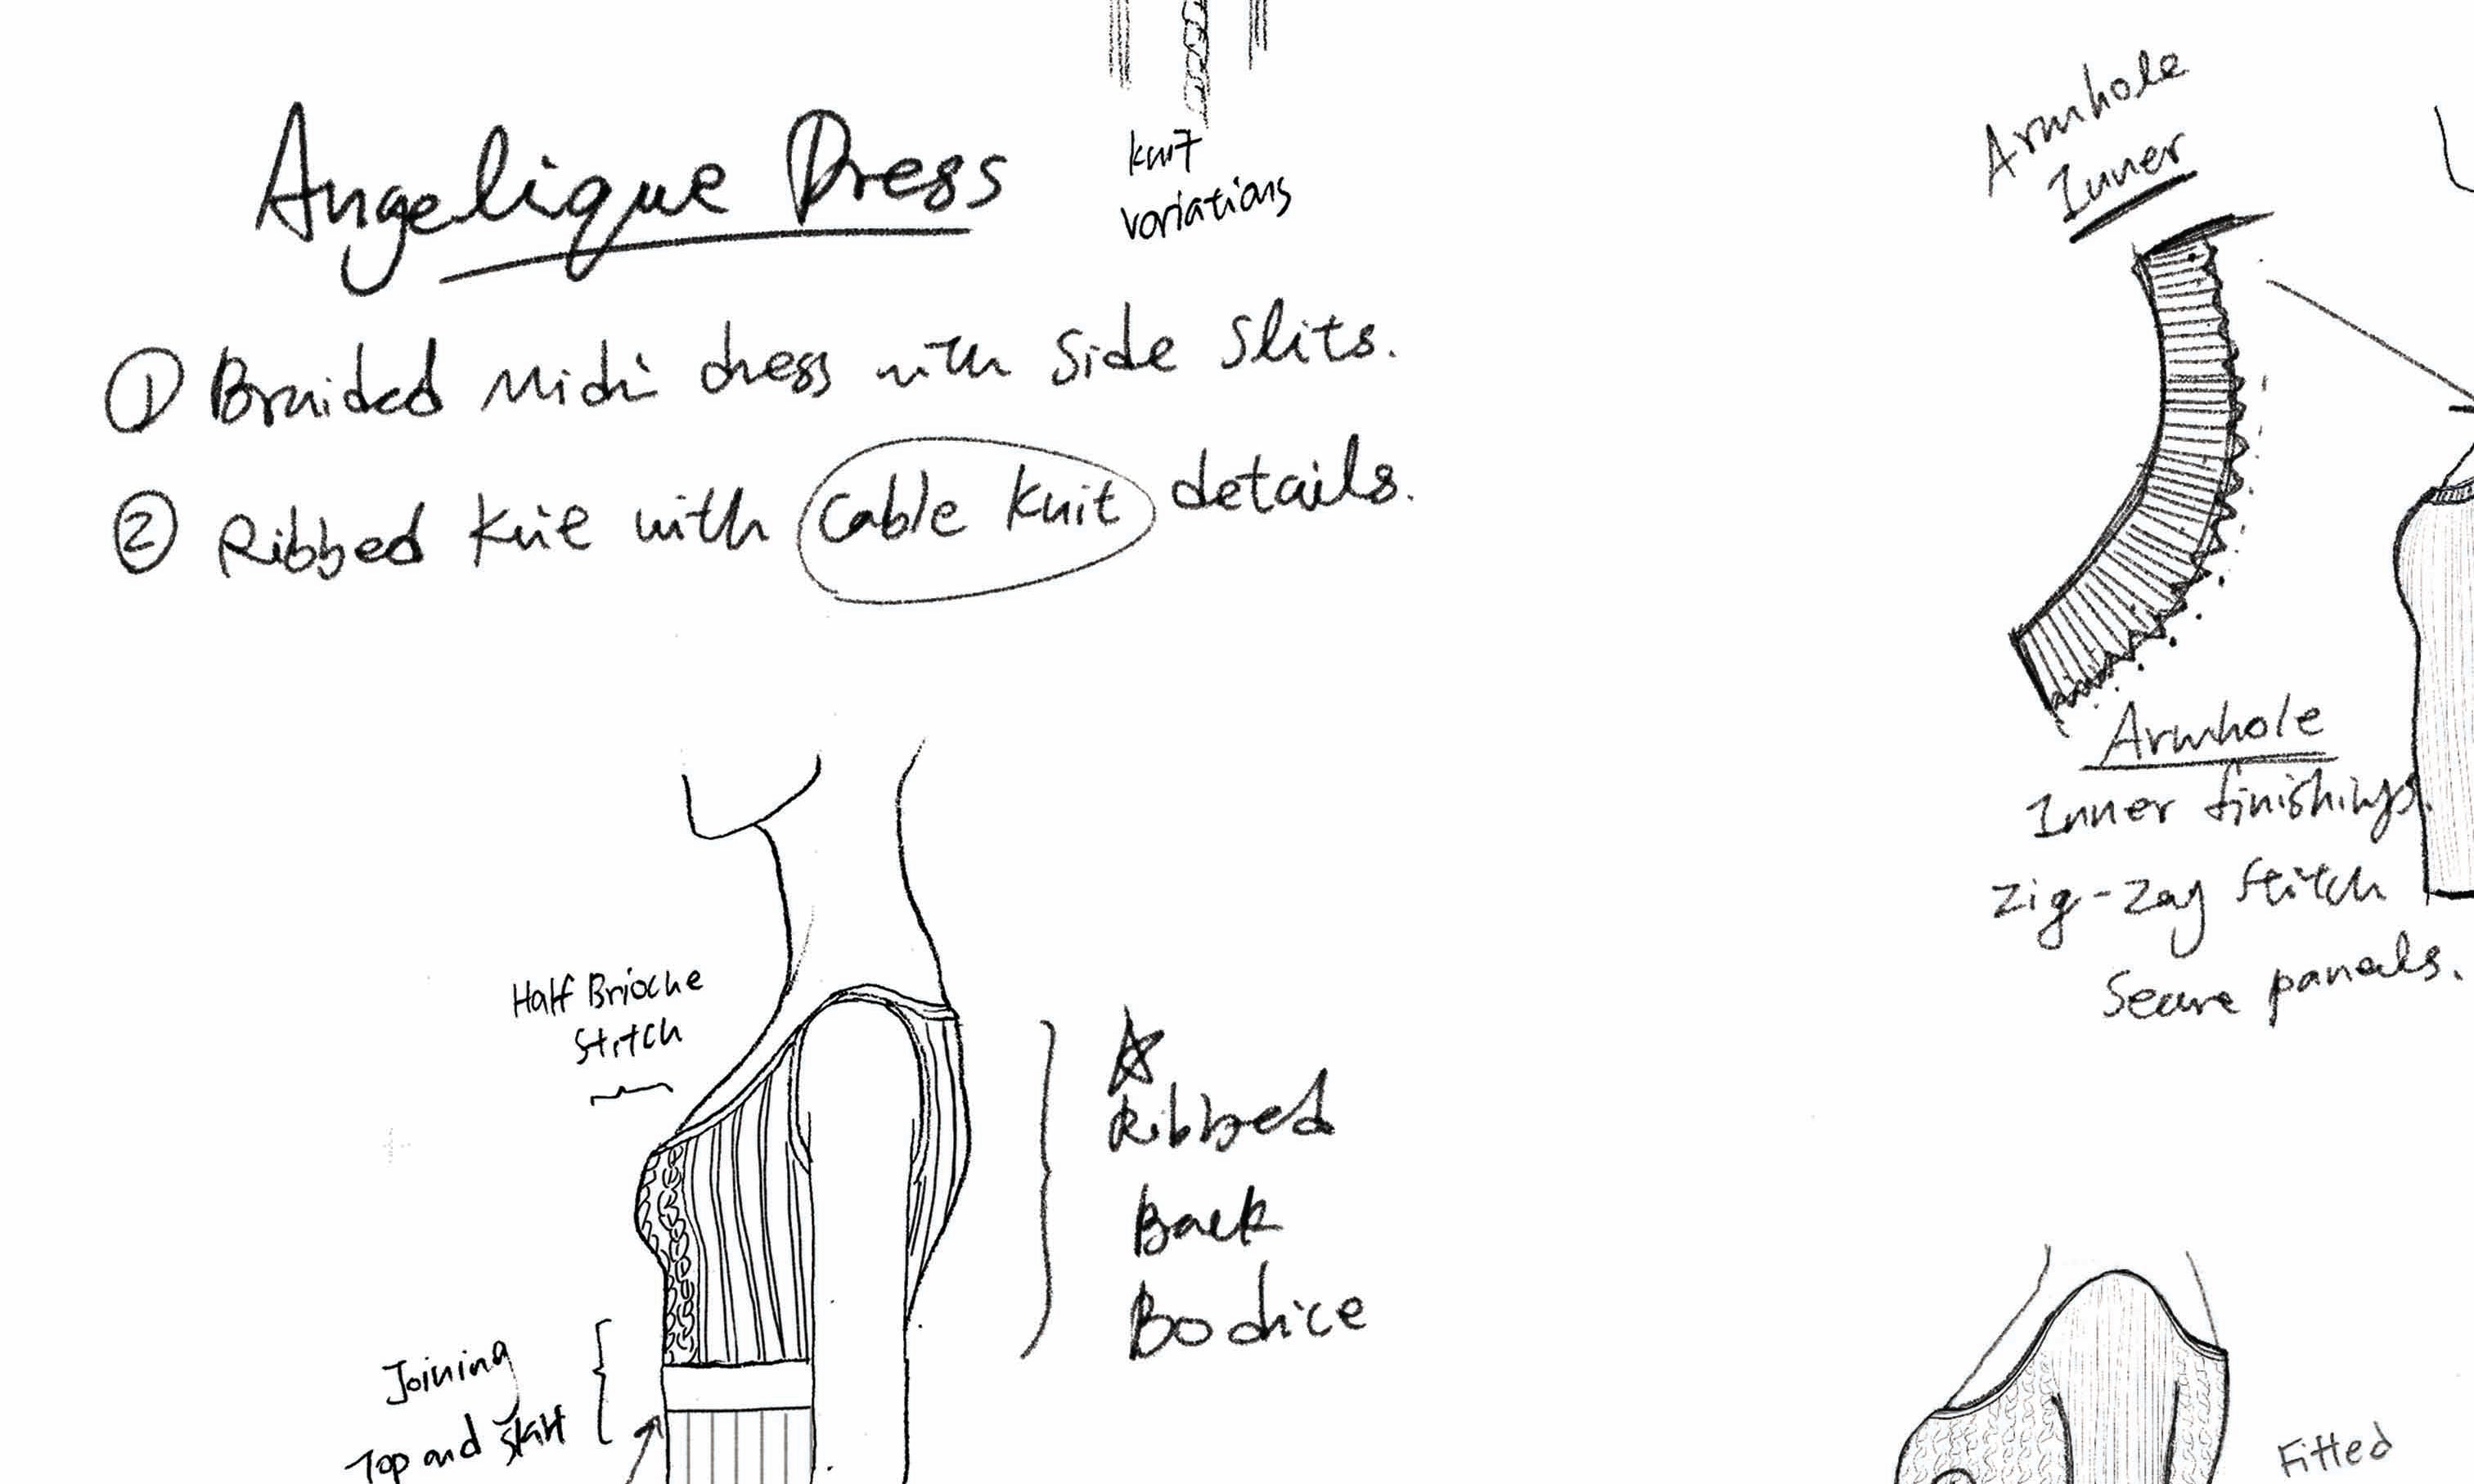 Angelique Dress
knit
variations
① Braided Midi dress with Side Slits.
② Ribbed Knit with Cable Knit details.
Half Brioche
Stitch
☆
Ribbed
Back
Bodice
Joining
Top and Skirt
Armhole
Inner
Armhole
Inner finishings.
Zig-Zag Stitch
Secure panels.
Fitted